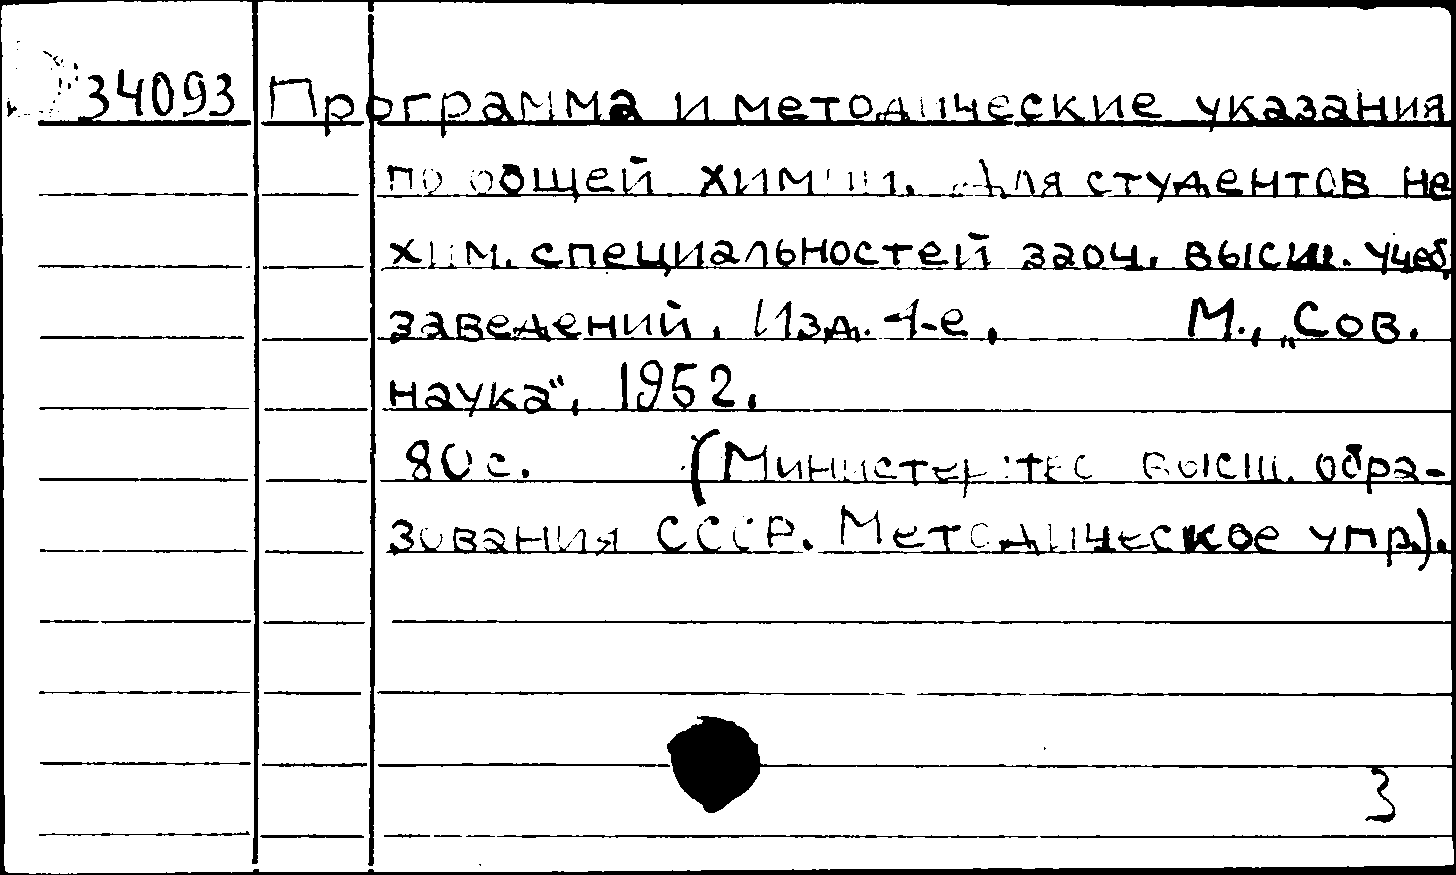 34093 Программа и методические указания
по общей химии. Для студентов не
хим. специальностей заоч. высш. учеб.
заведений. Изд. 4-е. М., „Сов.
наука“, 1952.
80 с. (Министерство высш. обра-
зования СССР. Методическое упр.).
3